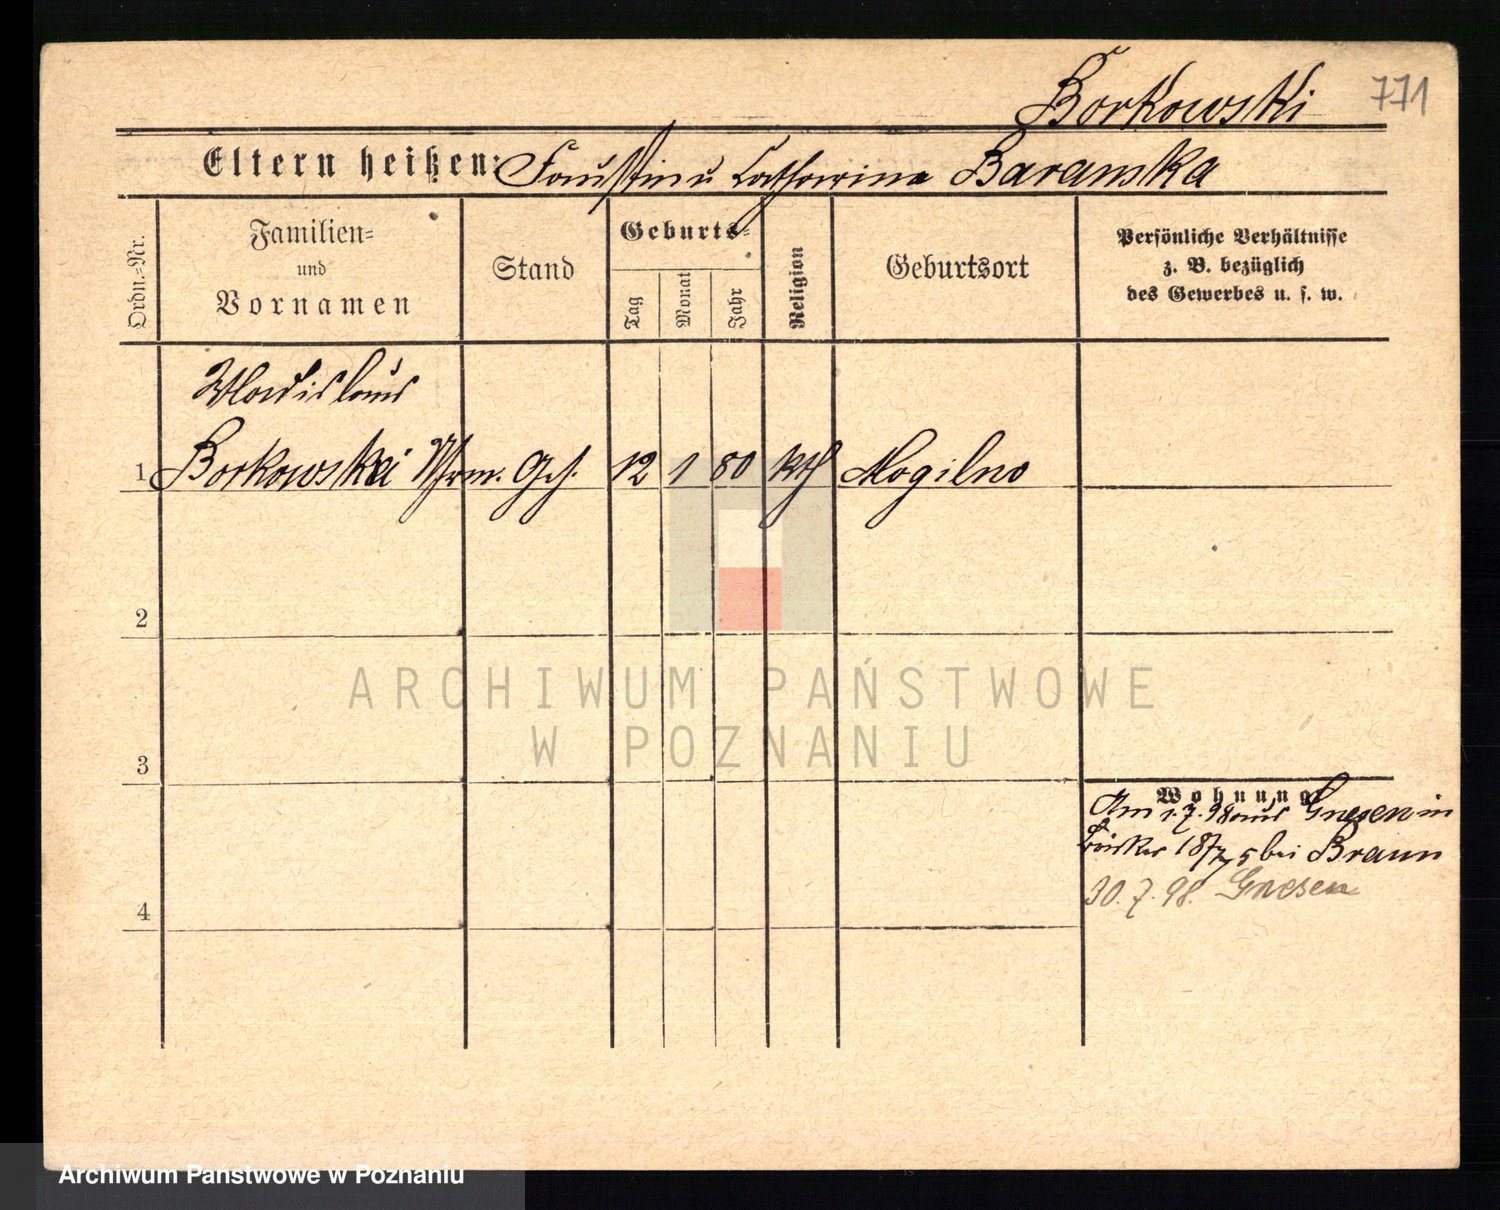 Borkowski 771
Eltern heißen: Faustin u Catharina Baranska
Ordn.-Nr.
Familien-
und
Vornamen
Stand
Geburts-
Tag
Monat
Jahr
Religion
Geburtsort
Persönliche Verhältnisse
z. B. bezüglich
des Gewerbes u. s. w.
Wladislaus
1 Borkowski Uhrm. Geh. 12 1 80 kth Mogilno
2
3
4
Wohnung
Am 1.7.98 aus Gnesen in
187/75 bei Braun
30.7.98. Gnesen
ARCHIWUM PAŃSTWOWE
W POZNANIU
Archiwum Państwowe w Poznaniu